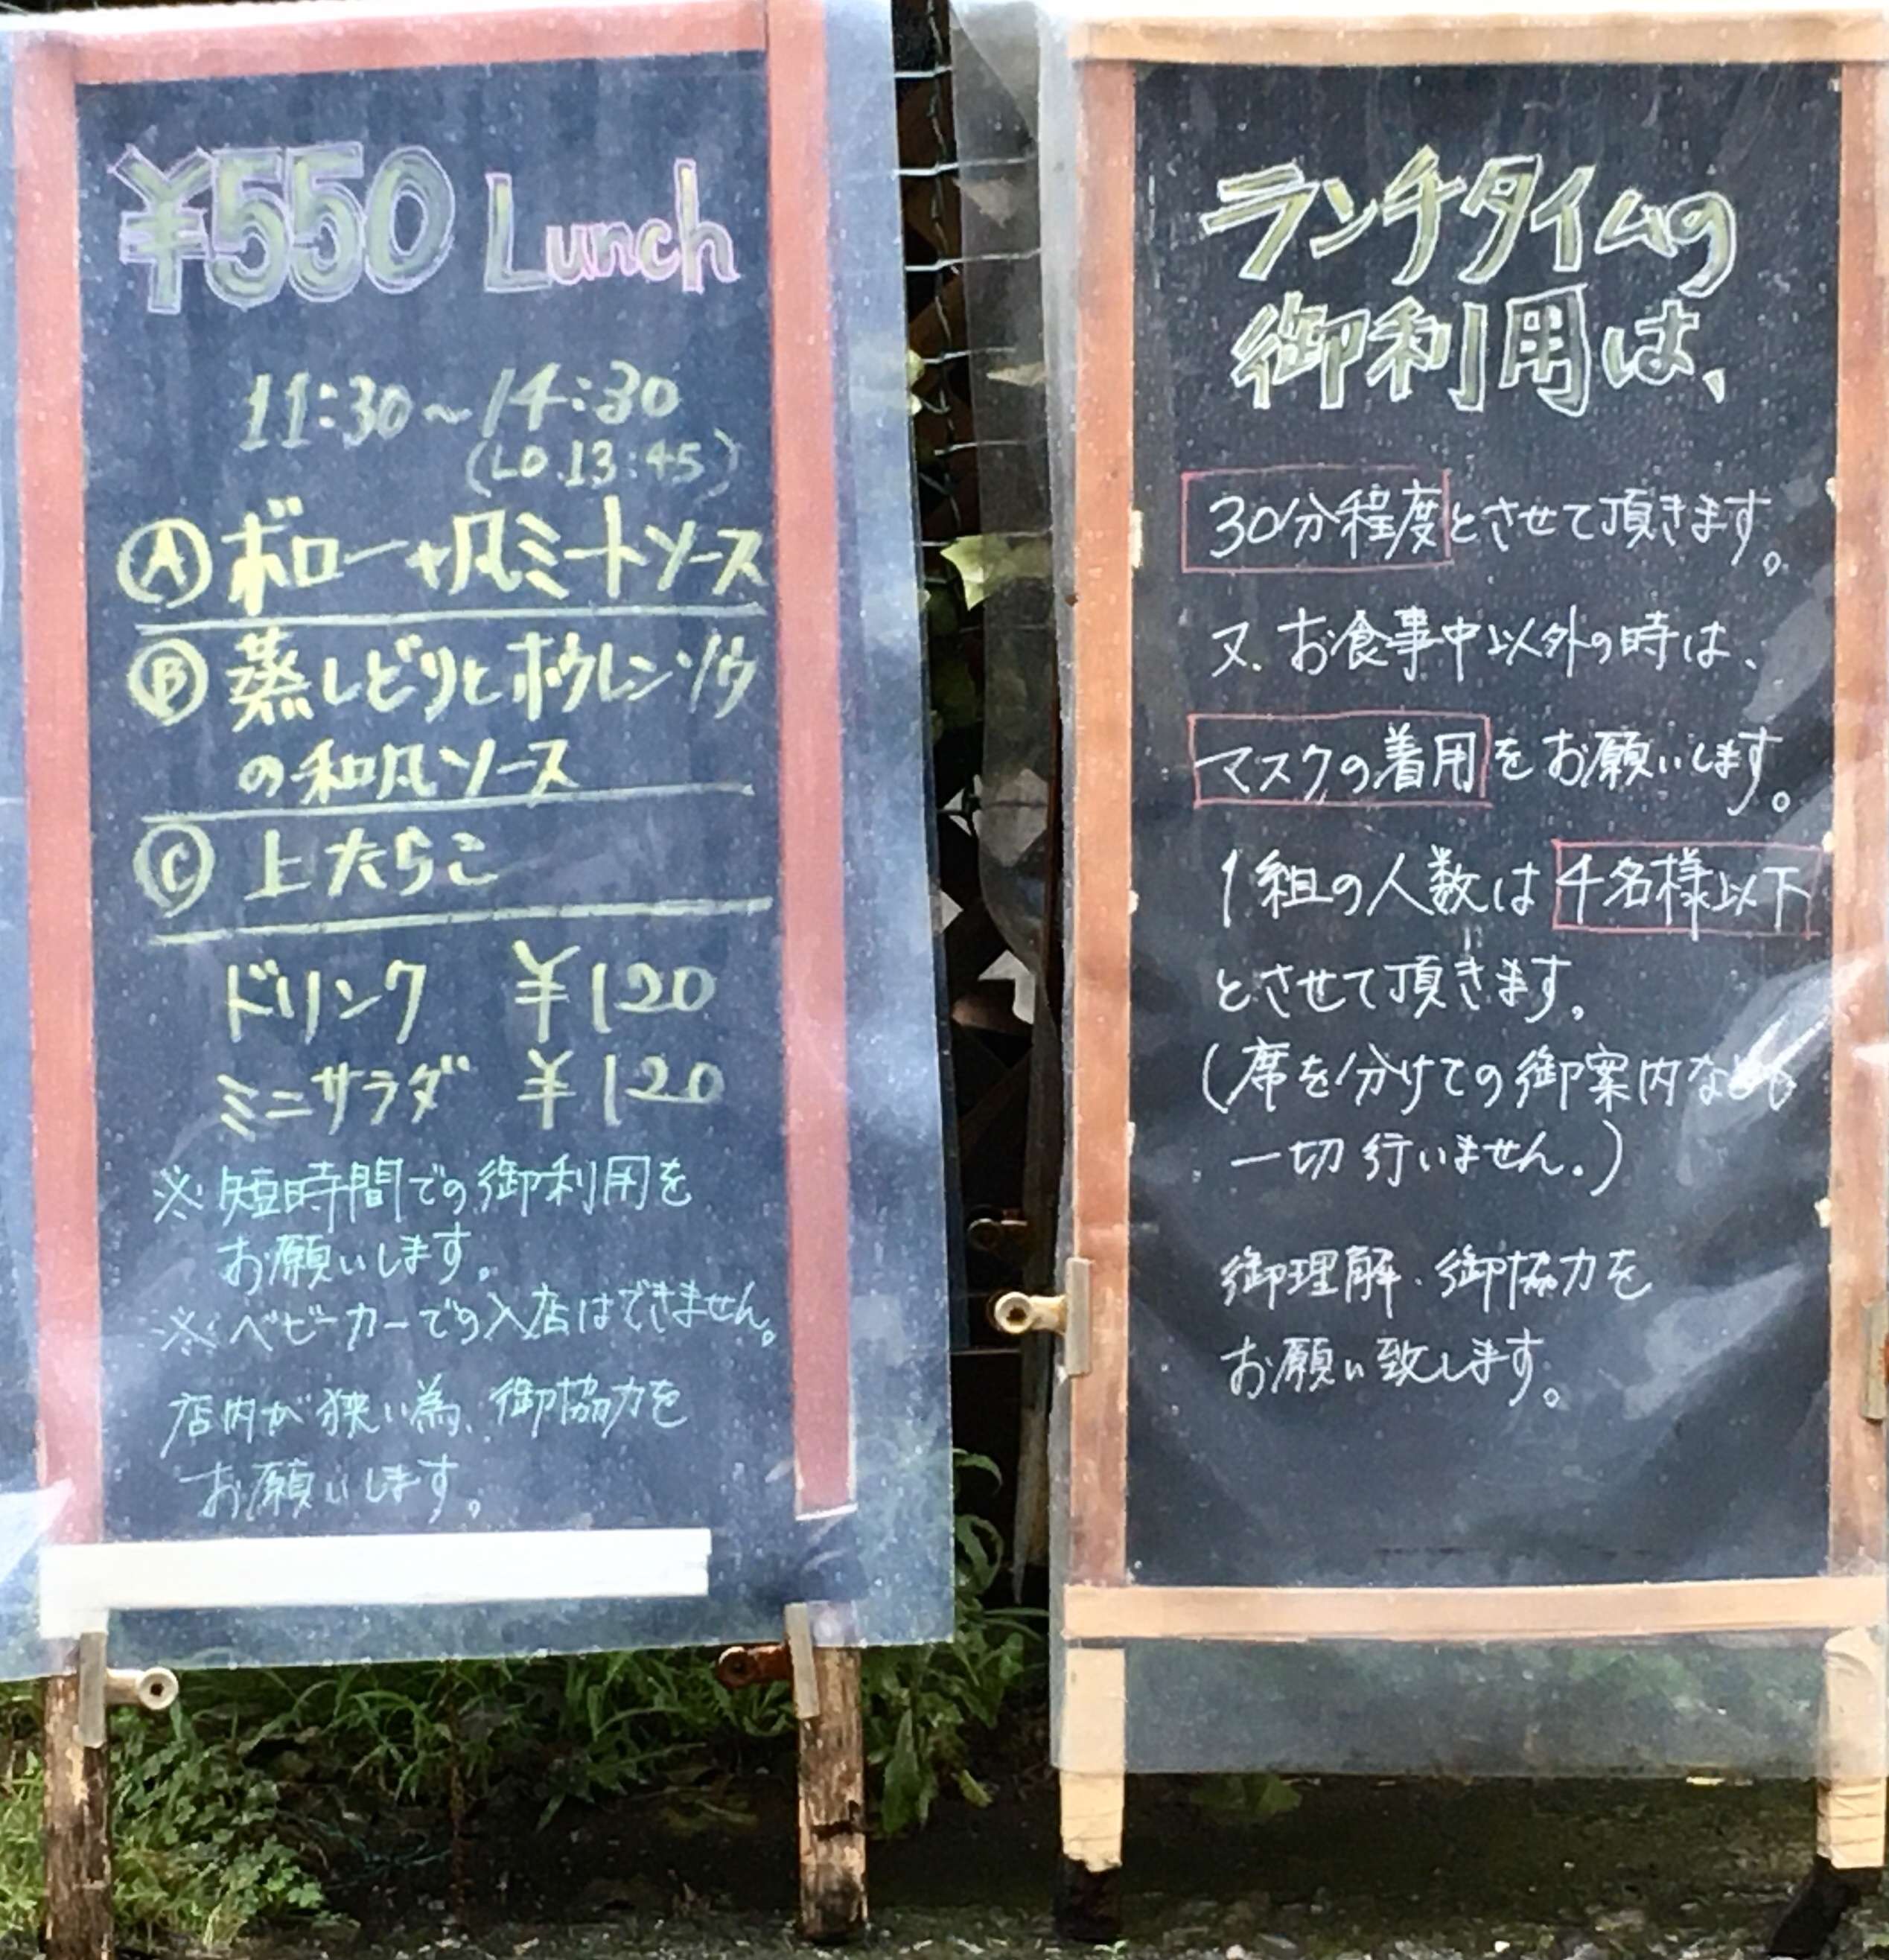 ¥550 Lunch
11:30～14:30
(LO.13:45)
Ⓐ ボローニャ風ミートソース
Ⓑ 蒸しどりとホウレンソウ
の和風ソース
Ⓒ 上たらこ
ドリンク ¥120
ミニサラダ ¥120
※短時間での御利用を
お願いします。
※ベビーカーでの入店はできません。
店内が狭い為、御協力を
お願いします。
ランチタイムの
御利用は、
30分程度とさせて頂きます。
又、お食事中以外の時は、
マスクの着用をお願いします。
1組の人数は4名様以下
とさせて頂きます。
(席を分けての御案内なども
一切行いません。)
御理解、御協力を
お願い致します。